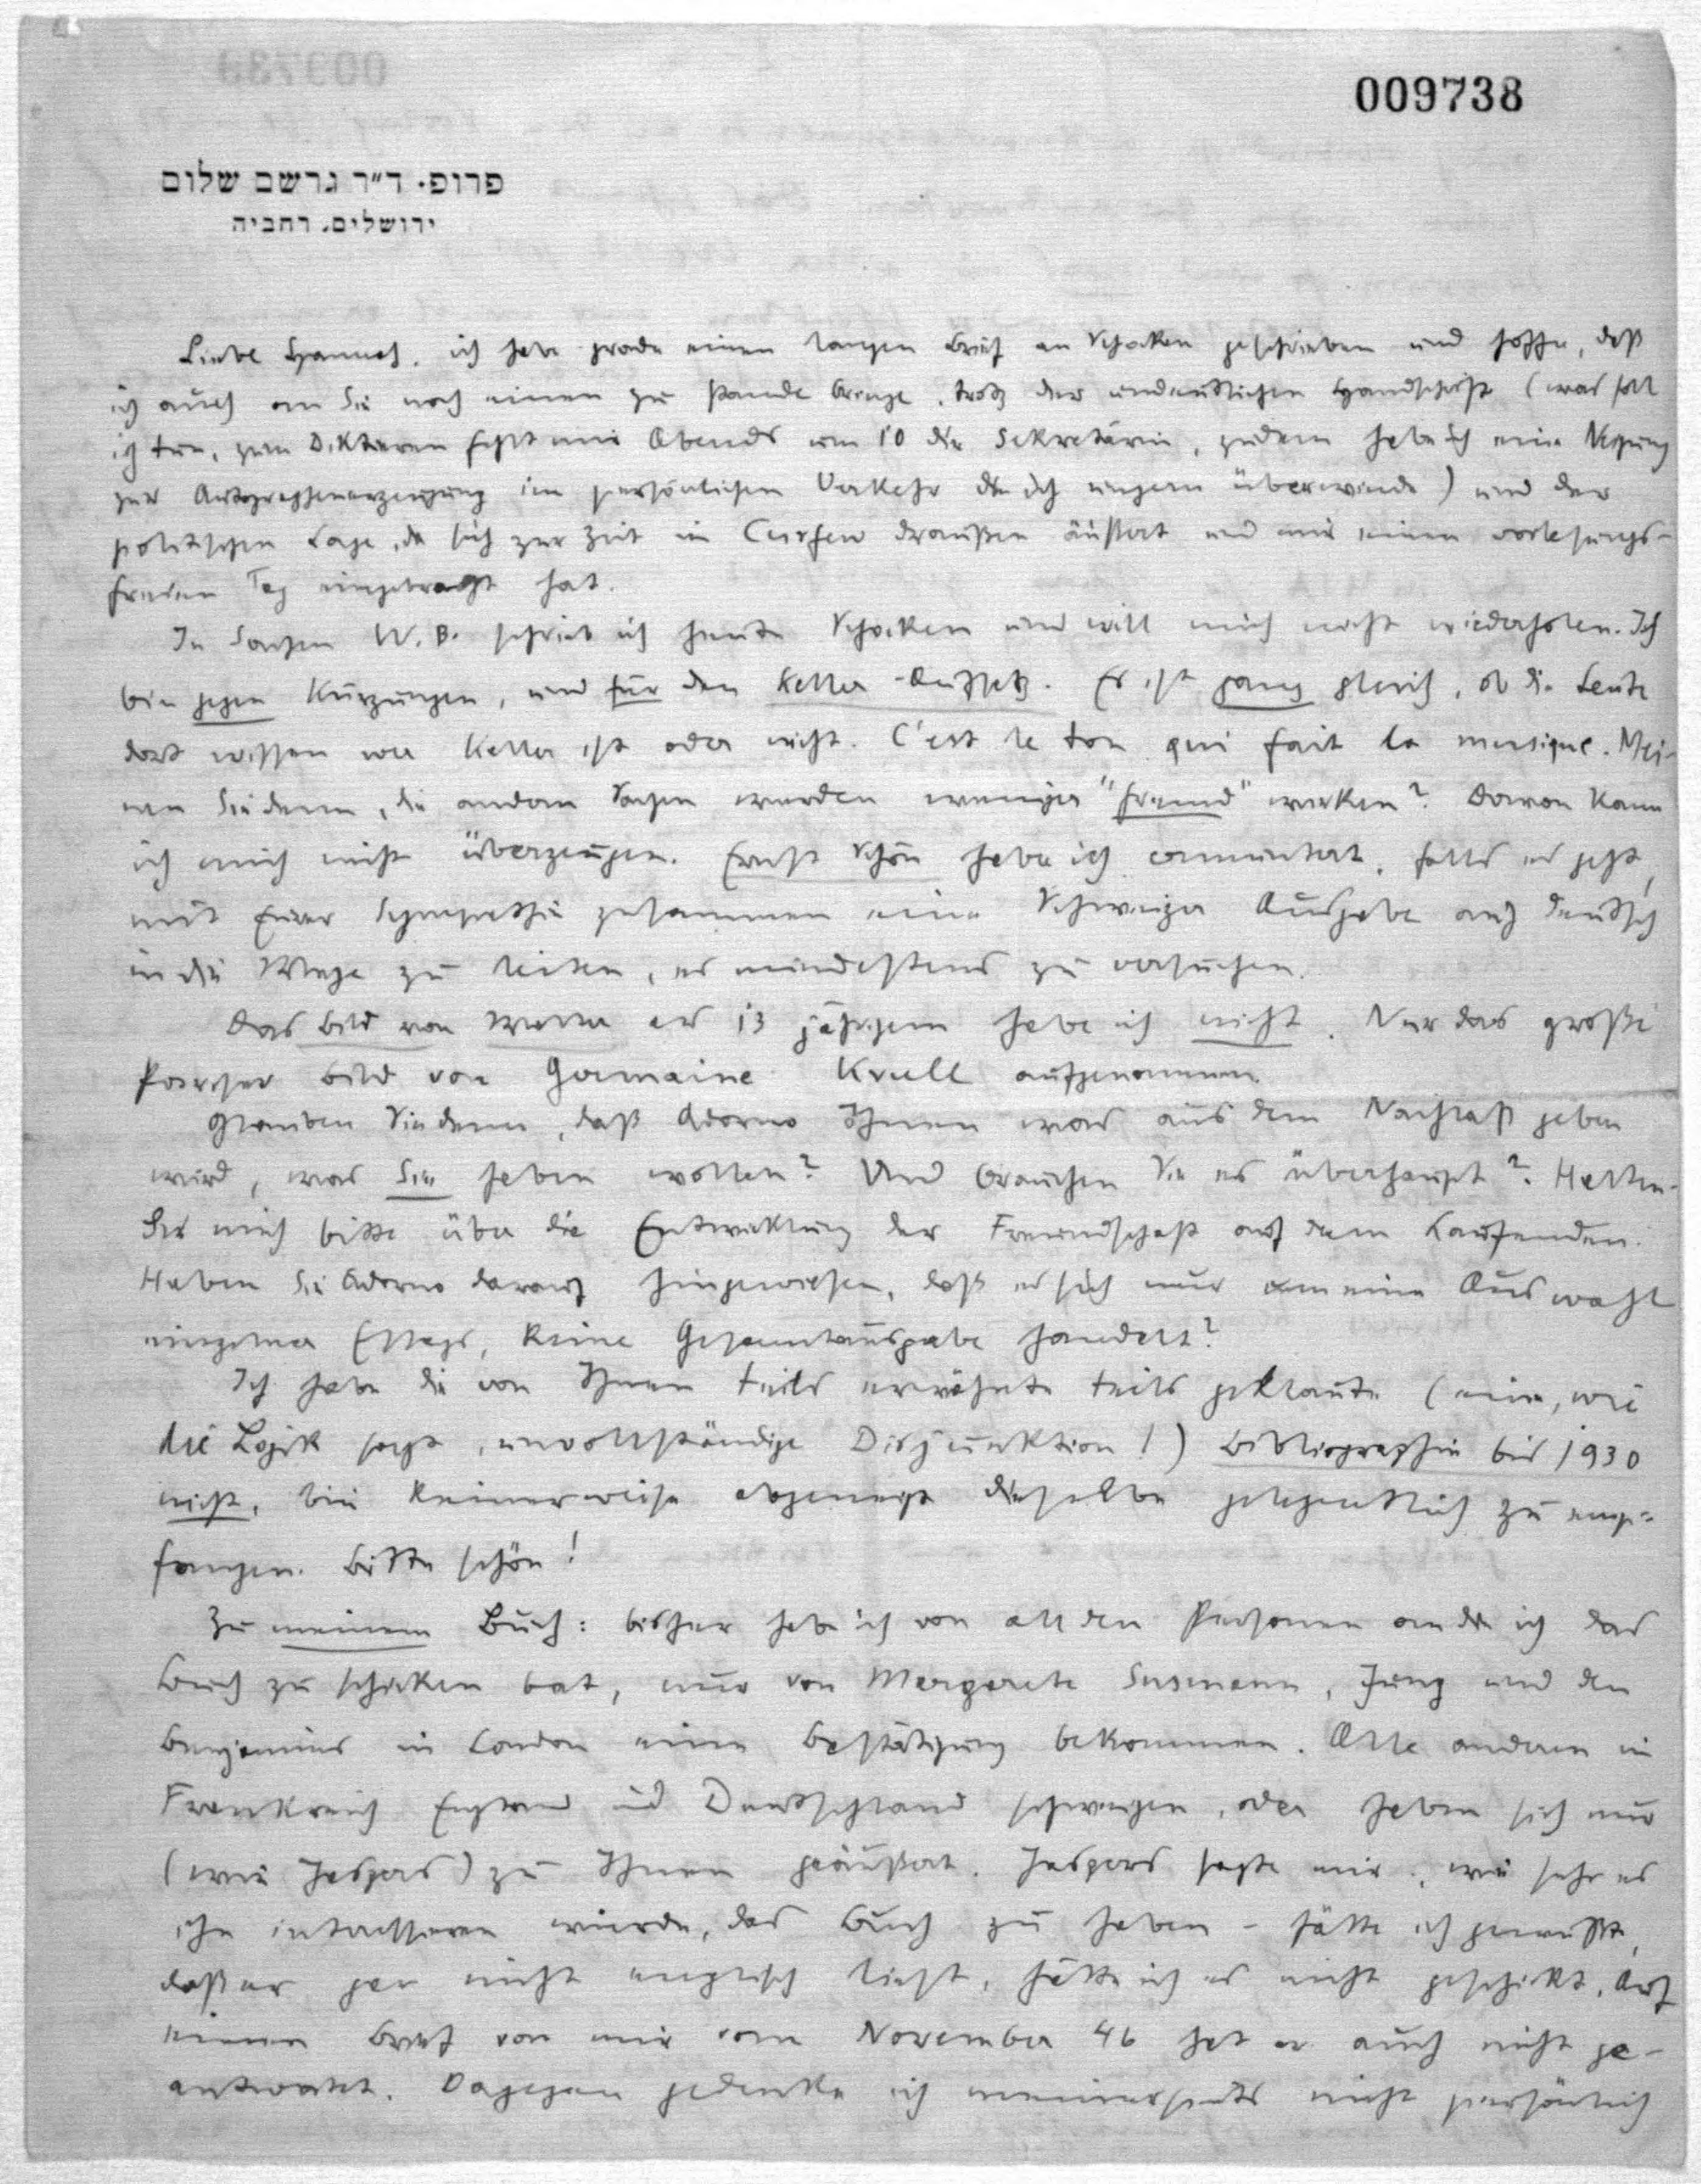 009738
פרופ. ד"ר גרשם שלום
ירושלים, רחביה
Liebe Hannah, ich habe grade einen langen Brief an Schocken geschrieben und hoffe, daß
ich auch an Sie noch einen zu stande bringe, trotz der undeutlichen Handschrift (was soll
ich tun, zum Diktieren fehlt mir Abends um 10 die Sekretärin, zudem habe ich eine Neigung
zur Autographenerzeugung im persönlichen Verkehr die ich ungern überwinde) und der
politischen Lage, die sich zur Zeit in Curfew draußen äußert und mir einen vorlesungs-
freien Tag eingebracht hat.
In Sachen W. B. schrieb ich heute Schocken und will mich nicht wiederholen. Ich
bin gegen Kürzungen, und für den Keller-Aufsatz. Es ist ganz gleich, ob die Leute
dort wissen wer Keller ist oder nicht. C'est le ton qui fait la musique. Mei-
nen Sie denn, die andern Sachen werden weniger "fremd" wirken? Davon kann
ich mich nicht überzeugen. Ernst Schön habe ich ermuntert, falls es geht,
mit Eurer Sympathie zusammen eine Schweizer Ausgabe auf deutsch
in die Wege zu leiten, es mindestens zu versuchen.
Das Bild von Walter als 13 jährigem habe ich nicht. Nur das große
Pariser Bild von Germaine Krull aufgenommen.
Glauben Sie denn, daß Adorno Ihnen was aus dem Nachlaß geben
wird, was Sie haben wollen? Und brauchen Sie es überhaupt? Halten
Sie mich bitte über die Entwicklung der Freundschaft auf dem Laufenden.
Haben Sie Adorno darauf hingewiesen, daß es sich nur um eine Auswahl
einzelner Essays, keine Gesamtausgabe handelt?
Ich habe die von Ihnen teils erwähnte teils geklaute (eine, wie
die Logik sagt, unvollständige Disjunktion!) Bibliographie bis 1930
nicht, bin keinerweise abgeneigt dieselbe gelegentlich zu emp-
fangen. Bitte schön!
Zu meinem Buch: bisher habe ich von all den Personen an die ich das
Buch zu schicken bat, nur von Margarete Susmann, Jung und den
Benjamins in London eine Bestätigung bekommen. Alle anderen in
Frankreich England und Deutschland schweigen, oder haben sich nur
(wie Jaspers) zu Ihnen geäußert. Jaspers sagte mir, wie sehr es
ihn interessieren würde, das Buch zu haben - hätte ich gewußt,
daß er gar nicht englisch liest, hätte ich es nicht geschickt. Auf
einen Brief von mir vom November 46 hat er auch nicht ge-
antwortet. Dagegen gedenke ich meinerseits nicht persönlich